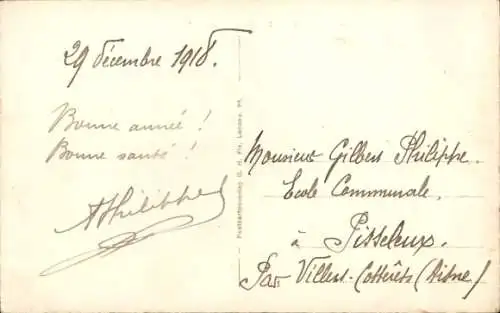 29 décembre 1918.
Bonne année !
Bonne santé !
APhilippe
Postkartenverlag G. H. Fix, Landau, Pf.
Monsieur Gilbert Philippe.
Ecole Communale.
à Pisseleux.
Par Villers-Cotterêts (Aisne)